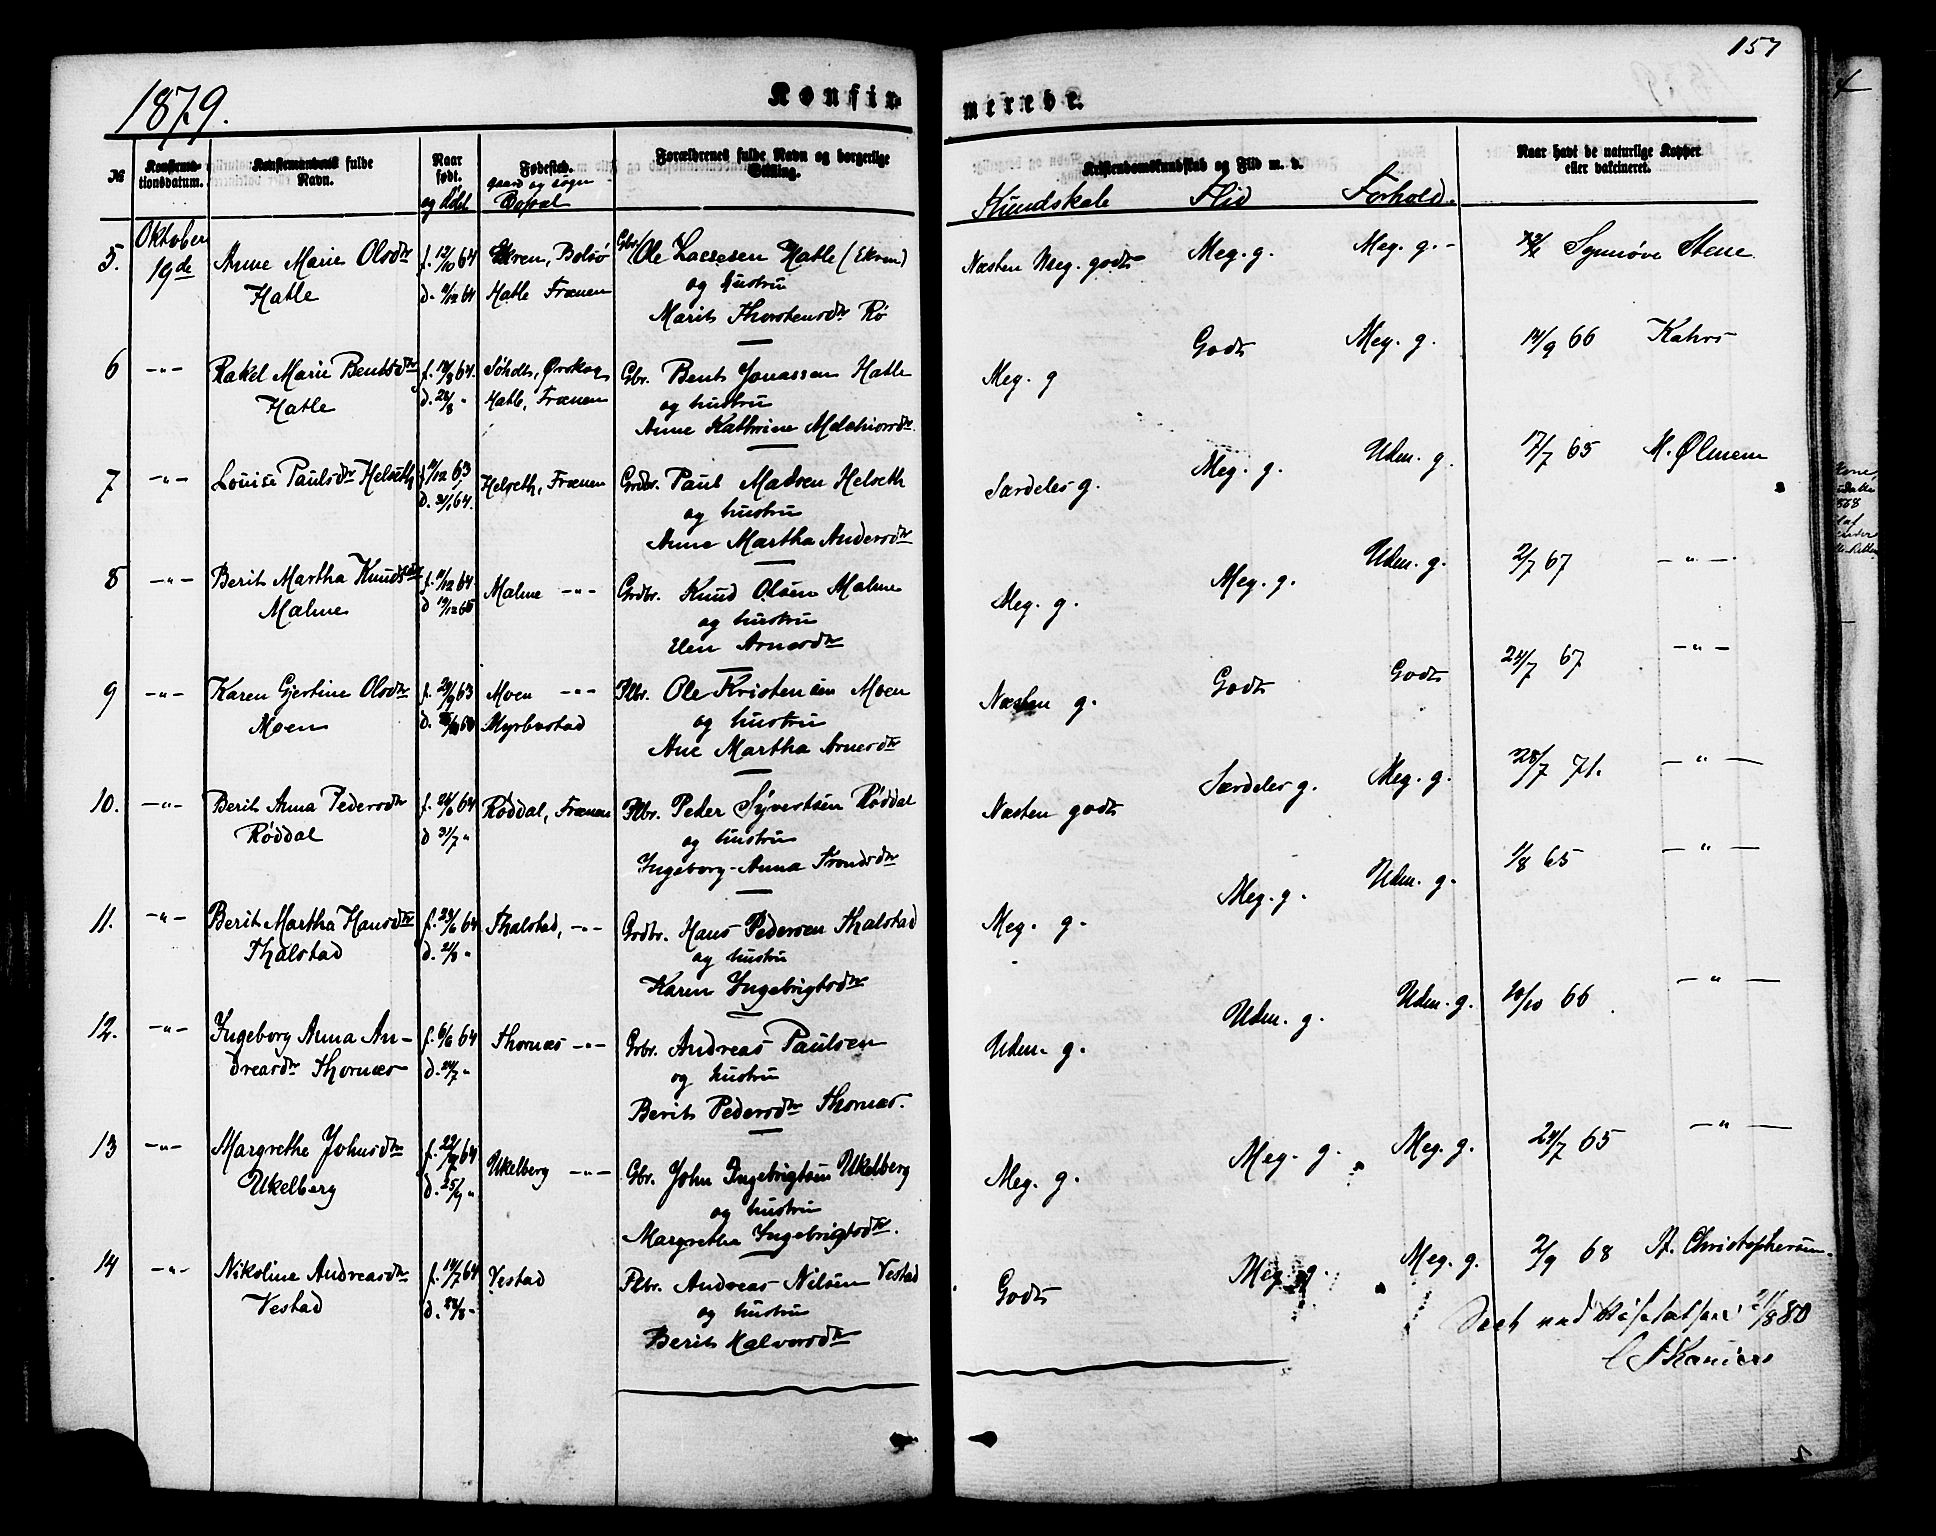 157
1879.
Konfir-
merede.
№
Konfirma-
tionsdatum.
Konfirmandens fulde
Navn.
Naar
født.
og døbt
Fødested.
gaard og sogn
Bopæl
Forældrenes fulde Navn og borgerlige
Stilling.
Kristendomskundskab og Flid m. v.
Kundskab Flid Forhold.
Naar havt de naturlige Kopper
eller vakcineret.
5. Oktober
19de
Anne Marie Olsdtr
Hatle
f. 12/10 64
d. 11/12 64
Ekren, Bolsø
Hatle Frænen
Gbr. Ole Lassesen Hatle (Ekren)
og hustru
Marit Thorstensdtr Rø
Næsten Meg. godt Meg. g. Meg. g. - Synnøve Stene
6 -"- Rakel Marie Bentsdtr
Hatle
f. 12/8 64.
d. 28/8 "
Søholt, Ørskog
Hatle, Frænen
Gbr. Bent Jonassen Hatle
og hustru
Anne Kathrine Melchiorsdtr
Meg. g Godt Meg. g. 14/9 66 Kahrs
7 -"- Louise Paulsdtr Helseth
f. 11/12 63
d. 31/1 64.
Helseth, Frænen
Grdbr. Paul Madsen Helseth
og hustru
Anne Martha Andersdtr
Særdeles g. Meg. g. Udm. g. 17/7 65 M. Ølmem
8 -"- Berit Martha Knudsdtr
Malme
f. 11/12 64.
d 19/12 65
Malme -"-
Grdbr. Knud Olsen Malme
og hustru
Elen Arnesdtr
Meg. g. Meg. g. Udm. g. 2/7 67 -"-
9 -"- Karen Gjertine Olsdtr
Moen
f. 29/9 63
Moen -"-
Myrbostad
Plbr. Ole Kristensen Moen
og hustru
Ane Martha Arnesdtr
Næsten g. Godt Godt 24/7 67 -"-
10. -"- Berit Anna Pedersdtr
Røddal
f. 26/6 64
d 31/7 "
Røddal, Frænen
Plbr. Peder Syvertsen Røddal
og hustru
Ingeborg-Anna Trondsdtr
Næsten godt Særdeles g. Meg. g. 28/7 71. -"-
11. -"- Berit Martha Hansdtr
Thalstad
f. 23/6 64
d. 21/8 "
Thalstad, -"-
Grdbr. Hans Pedersen Thalstad
og hustru
Karen Ingebrigtsdtr
Meg. g. Meg. g. Udm. g. 1/8 65 -"-
12. -"- Ingeborg Anna An-
dreasdtr Thornæs
f. 6/6 64
d. 24/7 "
Thornæs -"-
Grbr. Andreas Paulsen
og hustru
Berit Pedersdtr Thornæs.
Udm. g. Udm. g. Udm. g. 20/10 66 -"-
13 -"- Margrethe Johnsdtr
Ukelberg
f. 22/7 64
d. 25/9 "
Ukelberg -"-
Gbr. John Ingebrigtsen Ukelberg
og hustru
Margrethe Ingebrigtsdtr.
Meg. g. Meg. g. Meg. g. 24/7 65 -"-
14 -"- Nikoline Andreasdtr
Vestad
f. 14/7 64
d. 28/8 -
Vestad
Plbr. Andreas Nilsen Vestad
og hustru
Berit Halvorsdtr
Godt Meg. g. Meg. g. 2/9 68 A. Christophersen.
Seet ved 1880